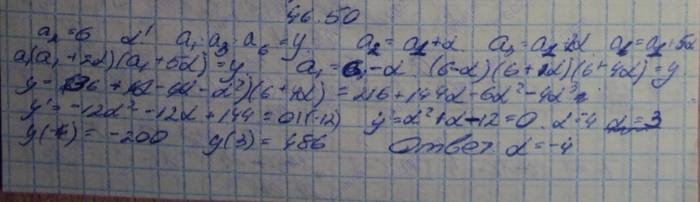 46.50
a₂=6 d! a₁·a₃·a₆=y a₂=a₁+d a₃=a₁+2d a₆=a₁+5d
a₁(a₁+2d)(a₁+5d)=y a₁=6-d (6-d)(6+d)(6+4d)=y
y=(36+6d-6d-d²)(6+4d)=216+144d-6d²-4d³
y'=-12d²-12d+144=0|(-12) y'=d²+d-12=0 d=-4 d=3
y(-4)=-200 y(3)=486 Ответ d=-4